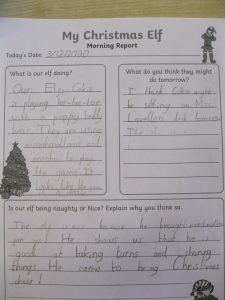 My Christmas Elf
Morning Report
Today's Date 3/12/2020
What is our elf doing?
Our Elf, Cokie
is playing tic-tac-toe
with a puppy
bear. They are using
marshmallows and
to play
the game. It
looks like
What do you think they might
do tomorrow?
I think Cokie might
be sitting on Miss
tomorrow
Is our elf being naughty or Nice? Explain why you think so.
The elf is nice because he brought marshmallows
for us! He shows us that he is
good at taking turns and sharing
things. He came to bring Christmas
cheer!